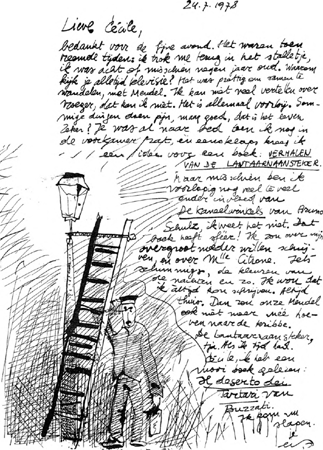 24.7.1978
Lieve Cécile,
bedankt voor de fijne avond. Het waren toen
tijdens ik nok me terug in het
ik was acht of misschien negen jaar oud. Waarom
kijk je altijd televisie? Het was prettig om samen te
wandelen, met Mendel. Ik kan niet veel vertellen over
vroeger, dat kan ik niet. Het is allemaal voorbij. Som-
mige dingen doen pijn, maar goed, dat is het leven
zeker? Je was al naar bed toen ik nog in
de voorkamer zat, en eensklaps kreeg ik
een idee voor een boek: VERHALEN
VAN DE LANTAARNAANSTEKER.
Maar misschien ben ik
voorlopig nog veel te veel
onder invloed van
De kaneelwinkels van Bruno
Schulz, ik weet het niet. Dat
boek heeft sfeer! Ik zou over mijn
overgrootmoeder willen schrij-
ven, en over Mlle Citrone. Iets
schunnigs, de kleuren van
de natuur en zo. Ik wou dat
ik altijd kon schrijven. Altijd
thuis. Dan zou onze Mendel
ook niet meer hoe-
ven naar de kribbe.
De lantaarnaansteker,
ik heb een
mooi boek gelezen:
Il deserto dei
Tartari van
Buzzati.
Ik ga nu
slapen.